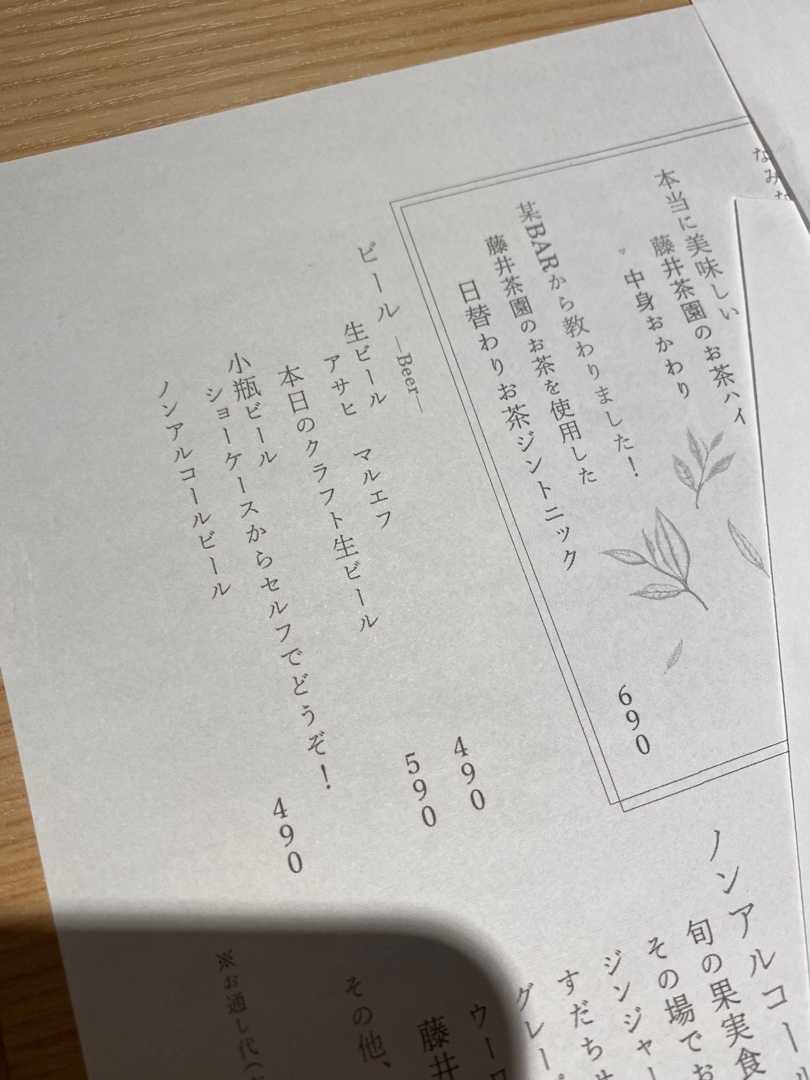 なみな
本当に美味しい
藤井茶園のお茶ハイ
中身おかわり
某BARから教わりました!
藤井茶園のお茶を使用した
日替わりお茶ジントニック
690
ビール ―Beer―
生ビール
アサヒ マルエフ
490
本日のクラフト生ビール
590
小瓶ビール
ショーケースからセルフでどうぞ!
ノンアルコールビール
490
ノンアルコール
旬の果実食
その場でお
ジンジャー
すだちサ
グレープ
ウーロ
藤井
その他、
※お通し代(